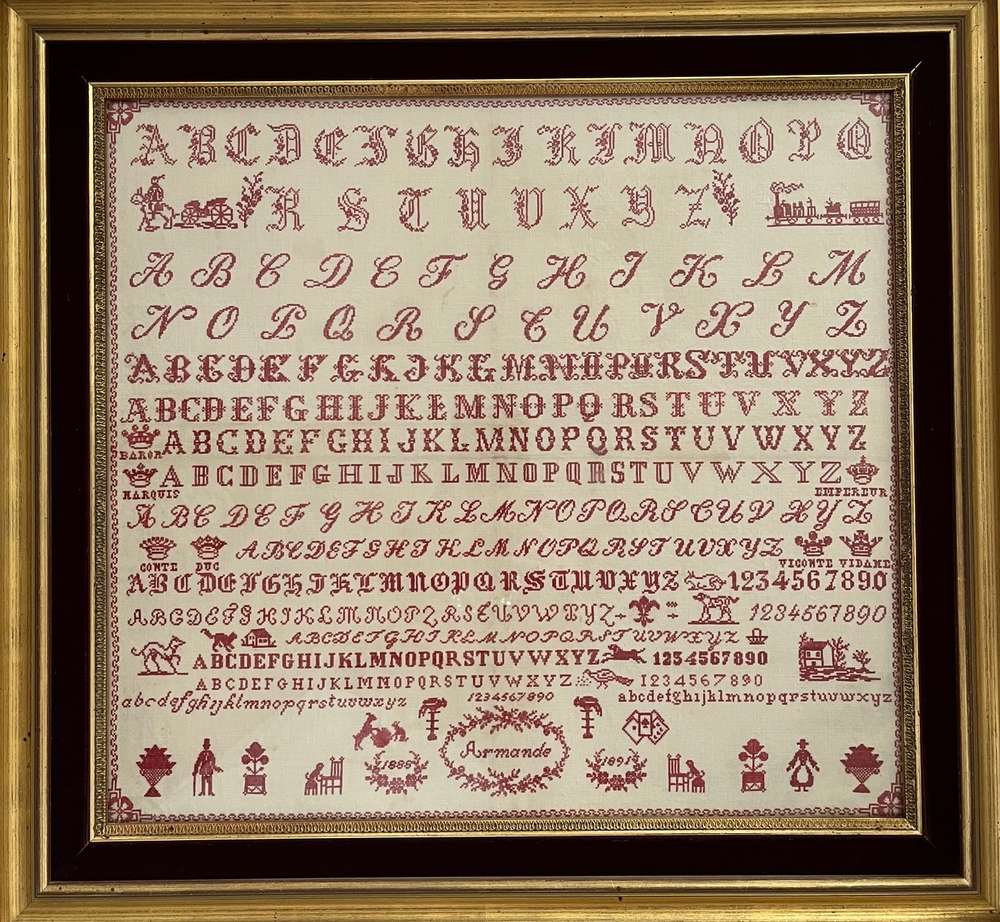 A B C D E F G H I K L M N O P Q
R S T U V X Y Z
A B C D E F G H I K L M
N O P Q R S T U V X Y Z
A B C D E F G H I J K L M N O P Q R S T U V X Y Z
A B C D E F G H I J K L M N O P Q R S T U V X Y Z
BARON A B C D E F G H I J K L M N O P Q R S T U V W X Y Z
A B C D E F G H I J K L M N O P Q R S T U V W X Y Z
MARQUIS EMPEREUR
A B C D E F G H I K L M N O P Q R S T U V X Y Z
A B C D E F G H I K L M N O P Q R S T U V X Y Z
CONTE DUC VICONTE VIDAME
A B C D E F G H I K L M N O P Q R S T U V X Y Z 1234567890
A B C D E F G H I K L M N O P Q R S T U V W X Y Z 1234567890
A B C D E F G H I K L M N O P Q R S T U V W X Y Z
ABCDEFGHIJKLMNOPQRSTUVWXYZ 1234567890
ABCDEFGHIJKLMNOPQRSTUVWXYZ 1234567890
abcdefghijklmnopqrstuvwxyz 1234567890 abcdefghijklmnopqrstuvwxyz
Armande
1885 1891